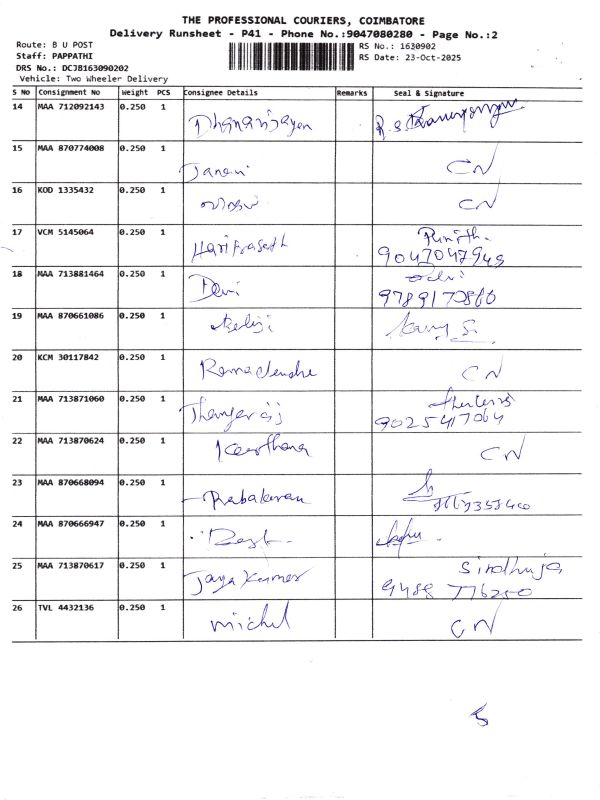 THE PROFESSIONAL COURIERS, COIMBATORE
Delivery Runsheet - P41 - Phone No.:9047080280 - Page No.:2
Route: B U POST
RS No.: 1630902
Staff: PAPPATHI
RS Date: 23-Oct-2025
DRS No.: DCJB163090202
Vehicle: Two Wheeler Delivery
S No Consignment No Weight PCS Consignee Details Remarks Seal & Signature
14 MAA 712092143 0.250 1 Dhananjayan
15 MAA 870774008 0.250 1 Janani CN
16 KOD 1335432 0.250 1 CN
17 VCM 5145064 0.250 1 Hariprasath Punith.
9047047949
18 MAA 713881464 0.250 1 Devi
9789170860
19 MAA 870661086 0.250 1
20 KCM 30117842 0.250 1 CN
21 MAA 713871060 0.250 1
9025417064
22 MAA 713870624 0.250 1 Keerthana CN
23 MAA 870668094 0.250 1 Prabakaran
24 MAA 870666947 0.250 1
25 MAA 713870617 0.250 1 Jaya Kumar Sindhuja
9488 776250
26 TVL 4432136 0.250 1 michel CN